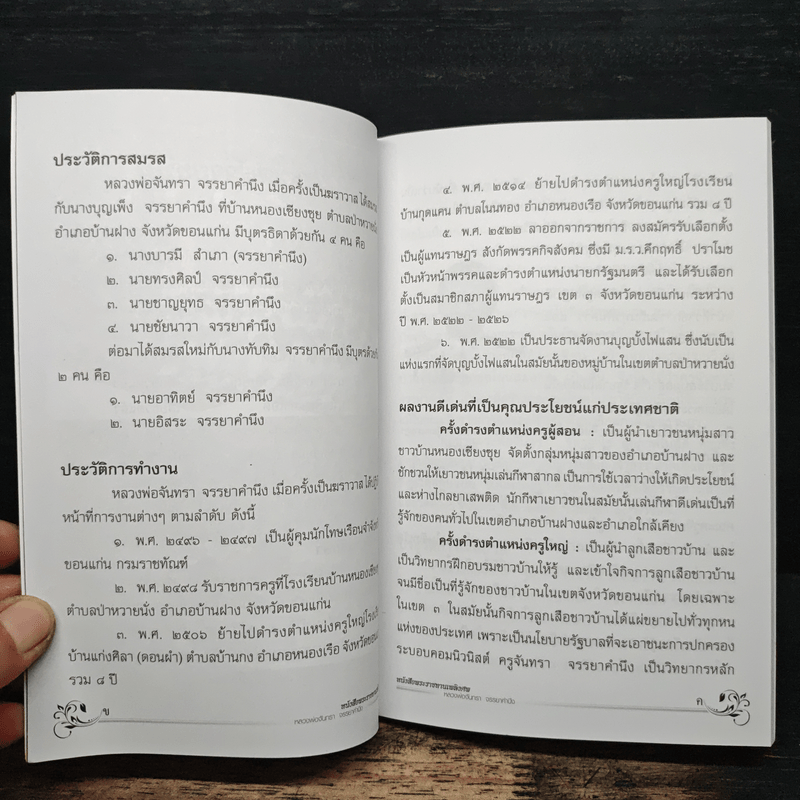 ประวัติการสมรส
หลวงพ่อจันทรา จรรยาคำนึง เมื่อครั้งเป็นฆราวาส
กับนางบุญเพ็ง จรรยาคำนึง ที่บ้านหนองเซียงซุย ตำบลป่าหวายนั่ง
อำเภอบ้านฝาง จังหวัดขอนแก่น มีบุตรธิดาด้วยกัน ๔ คน คือ
๑. นางบารมี สำเภา (จรรยาคำนึง)
๒. นายทรงศิลป์ จรรยาคำนึง
๓. นายชาญยุทธ จรรยาคำนึง
๔. นายชัยนาวา จรรยาคำนึง
ต่อมาได้สมรสใหม่กับนางทับทิม จรรยาคำนึง มีบุตรด้วย
๒ คน คือ
๑. นายอาทิตย์ จรรยาคำนึง
๒. นายอิสระ จรรยาคำนึง
ประวัติการทำงาน
หลวงพ่อจันทรา จรรยาคำนึง เมื่อครั้งเป็นฆราวาส
หน้าที่การงานต่างๆ ตามลำดับ ดังนี้
๑. พ.ศ. ๒๔๙๖ - ๒๔๙๗ เป็นผู้คุมนักโทษเรือนจำ
ขอนแก่น กรมราชทัณฑ์
๒. พ.ศ. ๒๔๙๘ รับราชการครูที่โรงเรียนบ้านหนองเซียง
ตำบลป่าหวายนั่ง อำเภอบ้านฝาง จังหวัดขอนแก่น
๓. พ.ศ. ๒๕๐๖ ย้ายไปดำรงตำแหน่งครูใหญ่
บ้านแก่งศิลา (ดอนผำ) ตำบลบ้านกง อำเภอหนองเรือ จังหวัดขอนแก่น
รวม ๘ ปี
ข
หนังสือพระราชทานเพลิงศพ
หลวงพ่อจันทรา จรรยาคำนึง
๔. พ.ศ. ๒๕๑๔ ย้ายไปดำรงตำแหน่งครูใหญ่โรงเรียน
บ้านกุดแคน ตำบลโนนทอง อำเภอหนองเรือ จังหวัดขอนแก่น รวม ๘ ปี
๕. พ.ศ. ๒๕๒๒ ลาออกจากราชการ ลงสมัครรับเลือกตั้ง
เป็นผู้แทนราษฎร สังกัดพรรคกิจสังคม ซึ่งมี ม.ร.ว.คึกฤทธิ์ ปราโมช
เป็นหัวหน้าพรรคและดำรงตำแหน่งนายกรัฐมนตรี และได้รับเลือก
ตั้งเป็นสมาชิกสภาผู้แทนราษฎร เขต ๓ จังหวัดขอนแก่น ระหว่าง
ปี พ.ศ. ๒๕๒๒ - ๒๕๒๖
๖. พ.ศ. ๒๕๒๒ เป็นประธานจัดงานบุญบั้งไฟแสน ซึ่งนับเป็น
แห่งแรกที่จัดบุญบั้งไฟแสนในสมัยนั้นของหมู่บ้านในเขตตำบลป่าหวายนั่ง
ผลงานดีเด่นที่เป็นคุณประโยชน์แก่ประเทศชาติ
ครั้งดำรงตำแหน่งครูผู้สอน : เป็นผู้นำเยาวชนหนุ่มสาว
ชาวบ้านหนองเซียงซุย จัดตั้งกลุ่มหนุ่มสาวของอำเภอบ้านฝาง และ
ชักชวนให้เยาวชนหนุ่มเล่นกีฬาสากล เป็นการใช้เวลาว่างให้เกิดประโยชน์
และห่างไกลยาเสพติด นักกีฬาเยาวชนในสมัยนั้นเล่นกีฬาดีเด่นเป็นที่
รู้จักของคนทั่วไปในเขตอำเภอบ้านฝางและอำเภอใกล้เคียง
ครั้งดำรงตำแหน่งครูใหญ่ : เป็นผู้นำลูกเสือชาวบ้าน และ
เป็นวิทยากรฝึกอบรมชาวบ้านให้รู้ และเข้าใจกิจการลูกเสือชาวบ้าน
จนมีชื่อเป็นที่รู้จักของชาวบ้านในเขตจังหวัดขอนแก่น โดยเฉพาะ
ในเขต ๓ ในสมัยนั้นกิจการลูกเสือชาวบ้านได้แผ่ขยายไปทั่วทุกหน
แห่งของประเทศ เพราะเป็นนโยบายรัฐบาลที่จะเอาชนะการปกครอง
ระบอบคอมนิวนิสต์ ครูจันทรา จรรยาคำนึง เป็นวิทยากรหลัก
หนังสือพระราชทานเพลิงศพ
หลวงพ่อจันทรา จรรยาคำนึง
ค